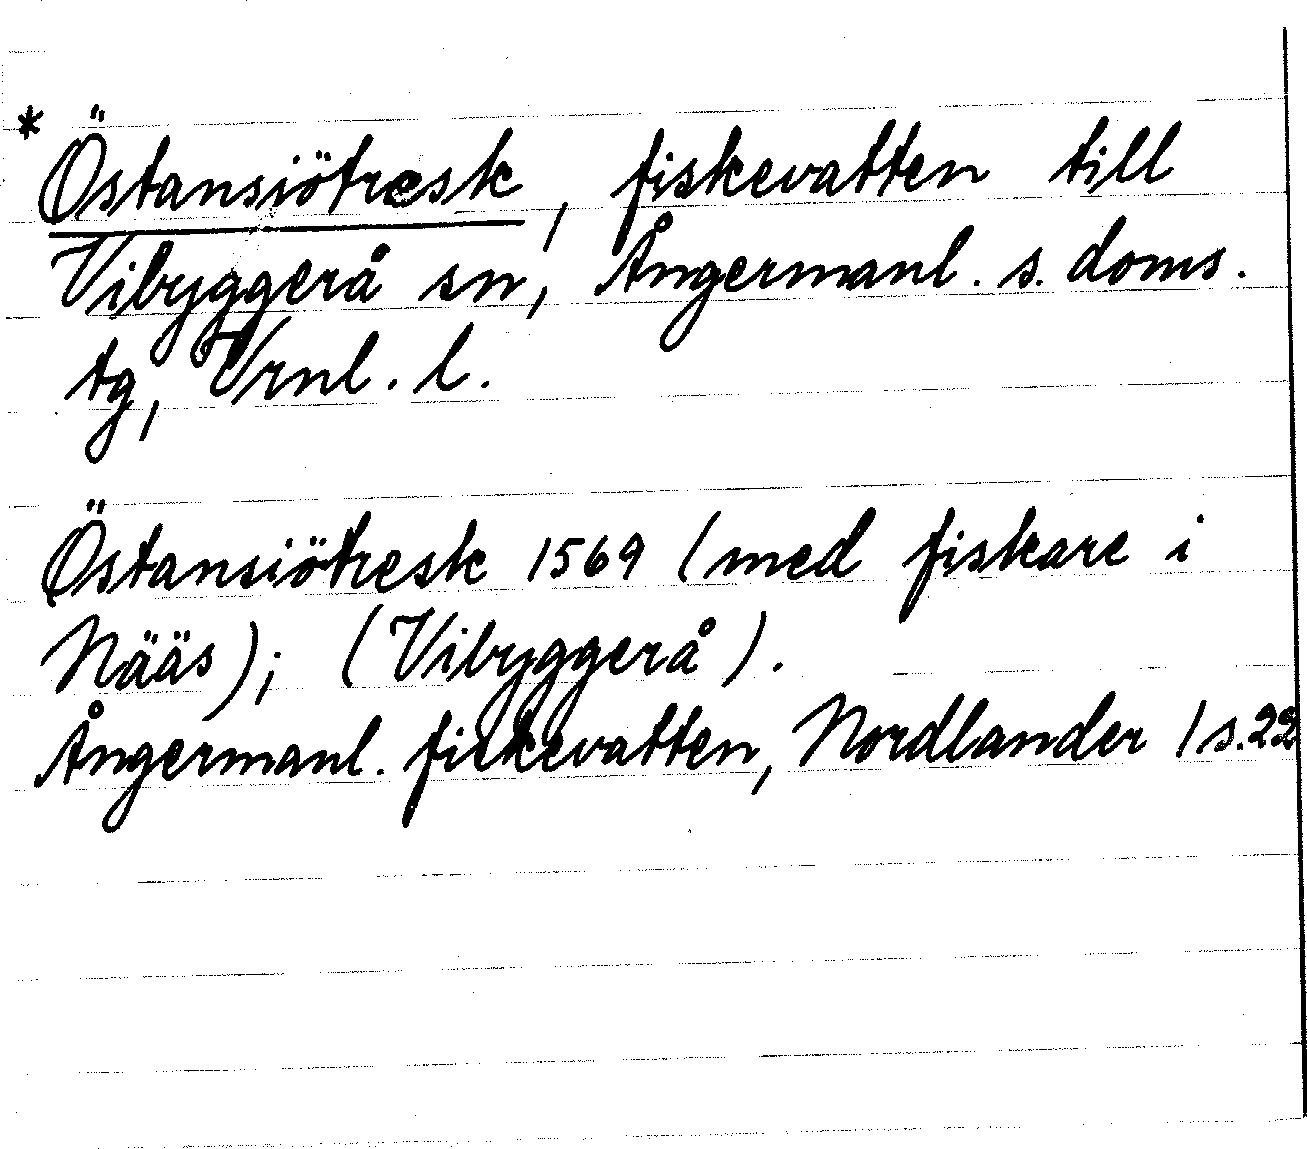 * Östansiötresk, fiskevatten till
Vibyggerå sn, Ångermanl. s. doms.
tg, Vrnl. l.
Östansiötresk 1569 (med fiskare i
Nääs); (Vibyggerå).
Ångermanl. fiskevatten, Nordlander 1 s. 22